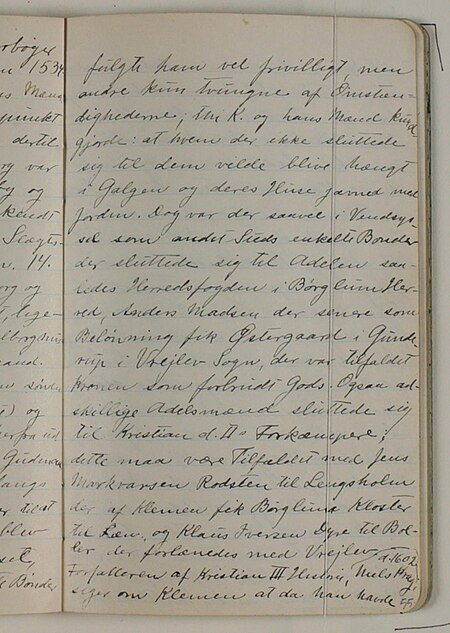 rbøger
n 1534
s Mæng
punkt
dertil
rg var
g og
kendt
Slægts-
n. 14.
rg og
lige-
and.
n sønden
t) og
Gudum
langs
blev
sel,
e Bønder
fulgte ham vel frivilligt, men
andre kun tvungne af Omstæn-
dighederne; thi K. og hans Mænd kund
gjorde: at hvem der ikke sluttede
sig til dem vilde blive hængt
i Galgen og deres Huse jævned med
Jorden. Dog var der saavel i Vendsys-
sel som andet Steds enkelte Bønder
der sluttede sig til Adelen saa-
ledes Herredsfogden i Børglum Her-
red, Anders Madsen der senere som
Belønning fik Østergaard i Gunde
rup i Vrejlev Sogn, der var tilfaldet
Kronen som forbrudt Gods. Ogsaa ad-
skillige Adelsmænd sluttede sig
til Kristian d. II's Forkæmpere;
dette maa være Tilfældet med Jens
Markvarsen Rodsten til Lengsholm
der af Klemen fik Børglum Kloster
til Læn, og Klaus Iversen Dyre til Bol-
ler der forlænedes med Vrejlev.
Forfatteren af Kristian III Historie, Niels Krag d. 1602
siger om Klemen at da han havde